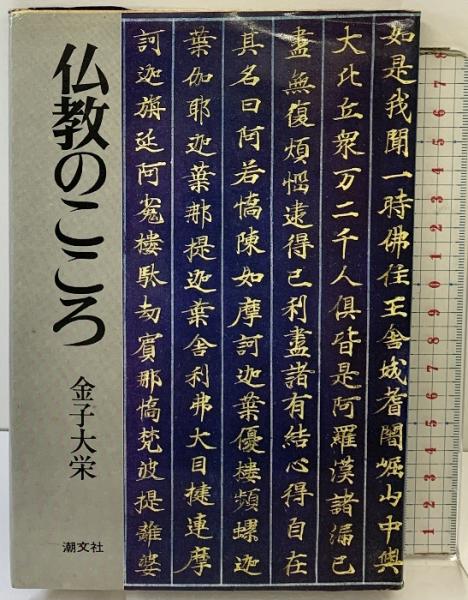 仏教のこころ
金子大栄
潮文社
如是我聞一時佛住王舎城耆闍崛山中與
大比丘衆万二千人俱皆是阿羅漢諸漏已
盡無復煩惱逮得己利盡諸有結心得自在
其名曰阿若憍陳如摩訶迦葉優樓頻螺迦
葉伽耶迦葉那提迦葉舎利弗大目揵連摩
訶迦旃延阿㝹樓馱劫賓那憍梵波提離婆
1 2 3 4 5 6 7 8